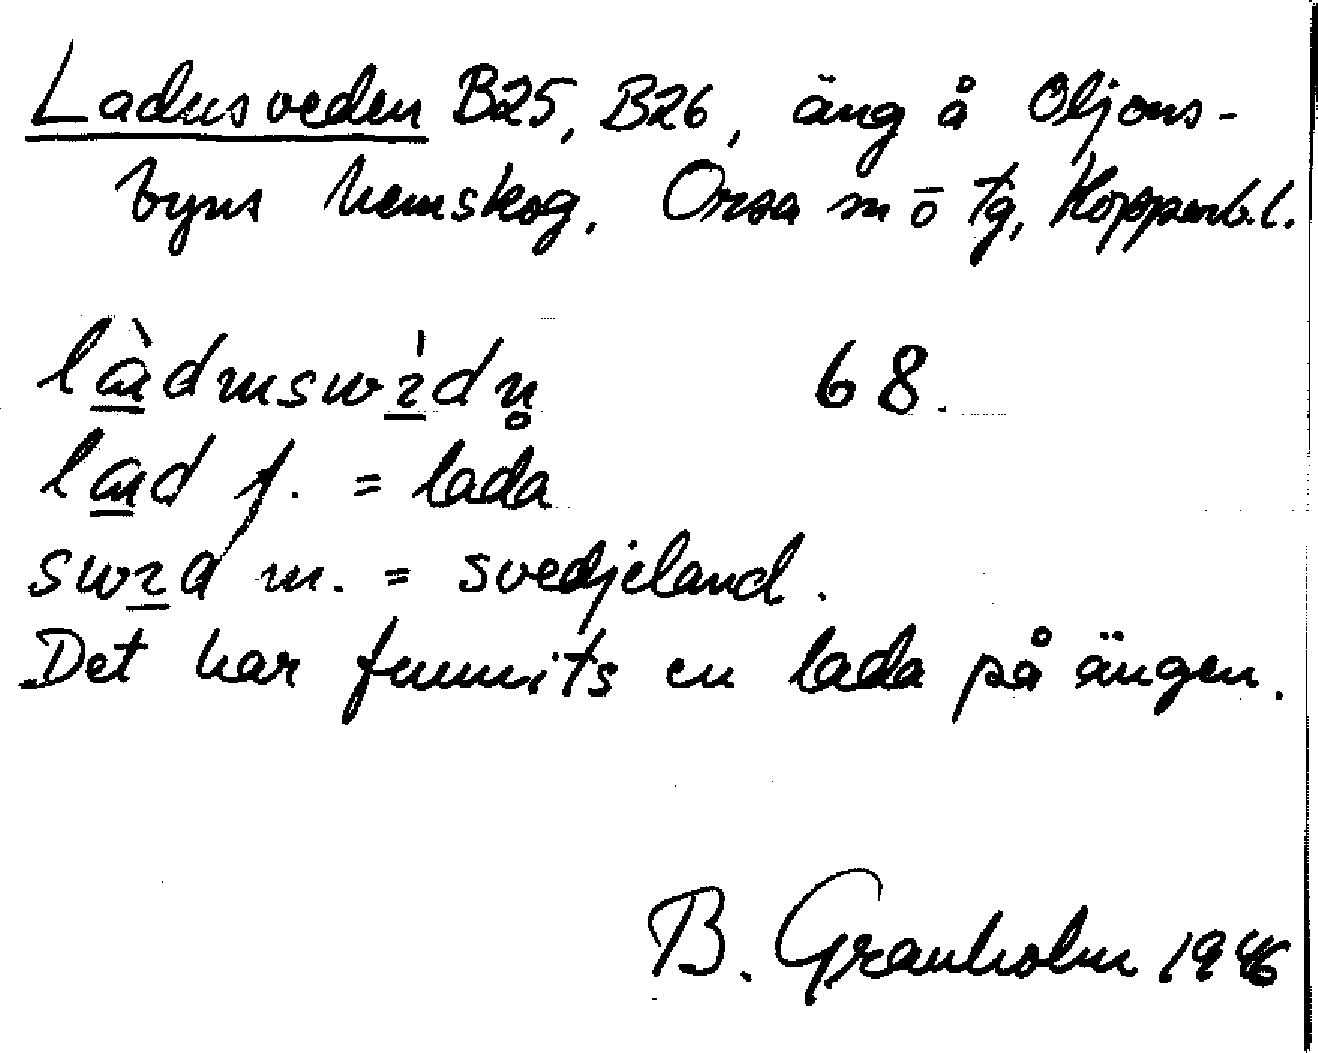 Ladusveden B25, B26, äng å Oljons-
byns hemskog, Orsa sn o tg, Kopparb. l.
68.
f. = lada
m. = svedjeland.
Det har funnits en lada på ängen.
B. Granholm 1946